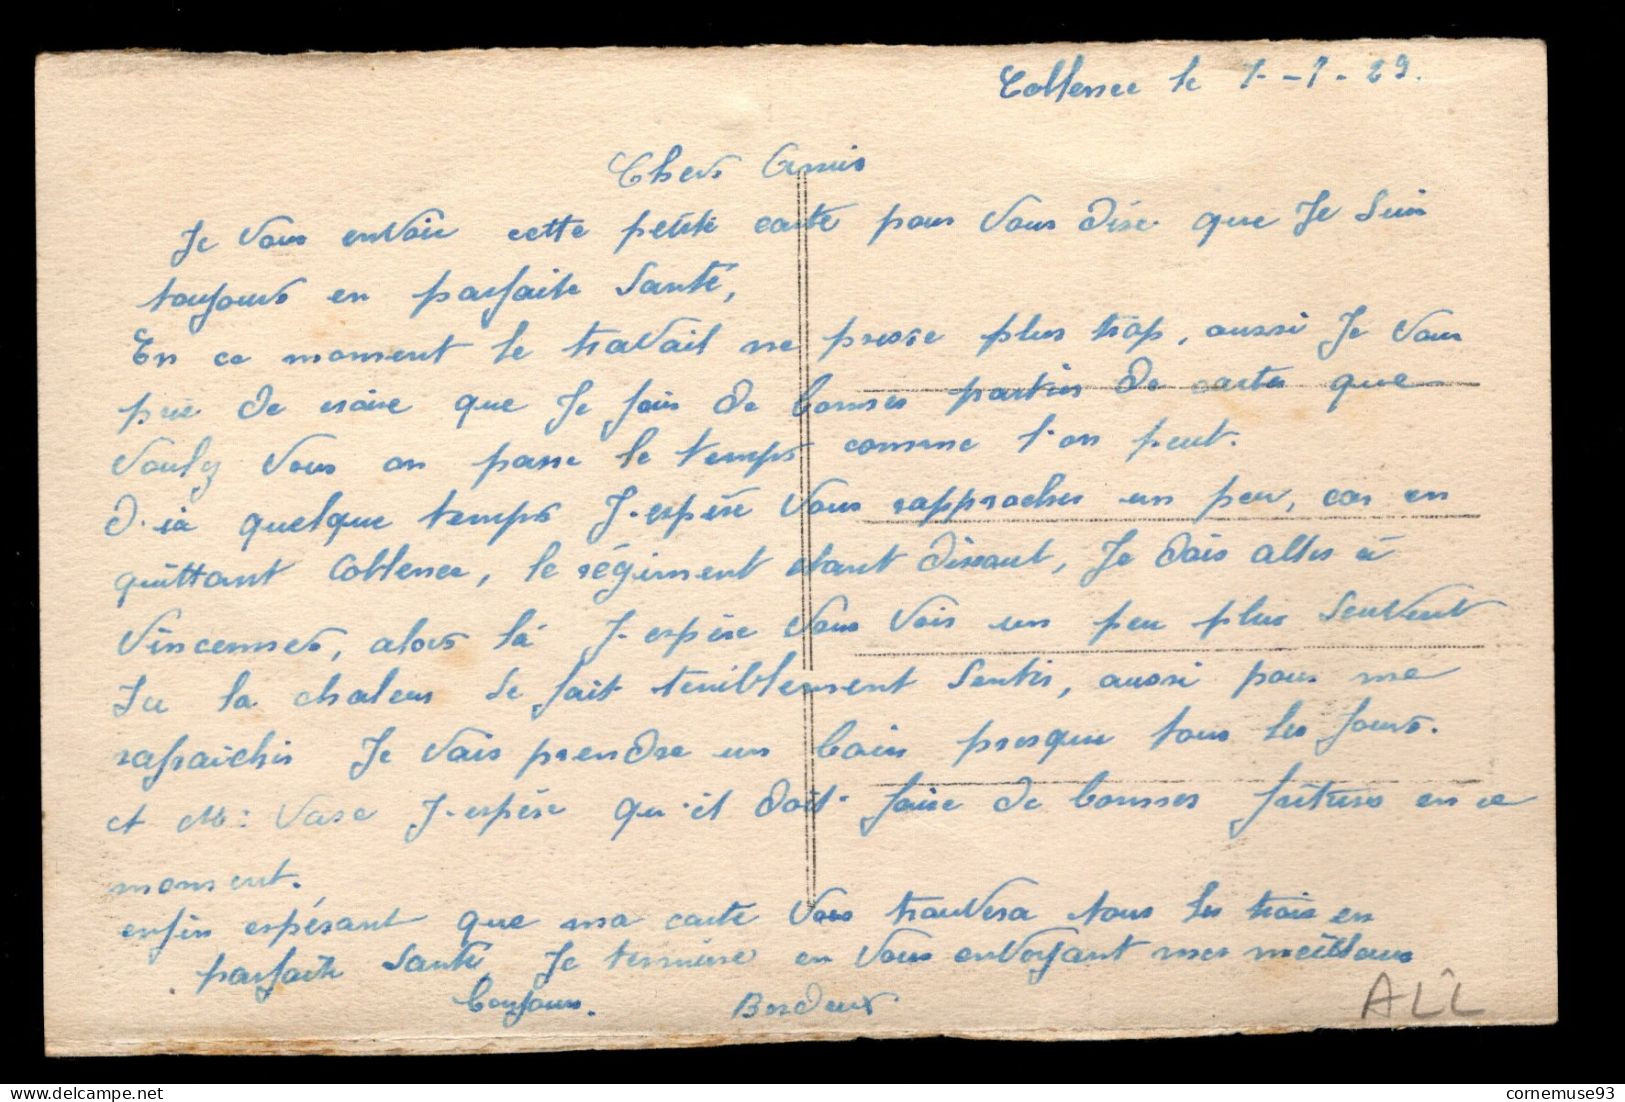 Coblence le 7-7-29.
Chers Amis
Je vous envoie cette petite carte pour vous dire que Je suis
toujours en parfaite santé,
En ce moment le travail ne presse plus trop, aussi Je vous
prie de croire que Je fais de bonnes parties de cartes que
voulez vous on passe le temps comme l'on peut.
D'ici quelque temps J'espère vous rapprocher un peu, car en
quittant Coblence, le régiment étant dissout, Je dois aller à
Vincennes, alors là J'espère vous voir un peu plus souvent
Ici la chaleur se fait terriblement sentir, aussi pour me
rafraichir Je vais prendre un bain presque tous les Jours.
et Mr Vase J'espère qu'il doit faire de bonnes fritures en ce
moment.
enfin espérant que ma carte vous trouvera tous les trois en
parfaite santé, Je termine en vous envoyant mes meilleurs
bonjours. Bordeux
ALL
delcampe.net
cornemuse93